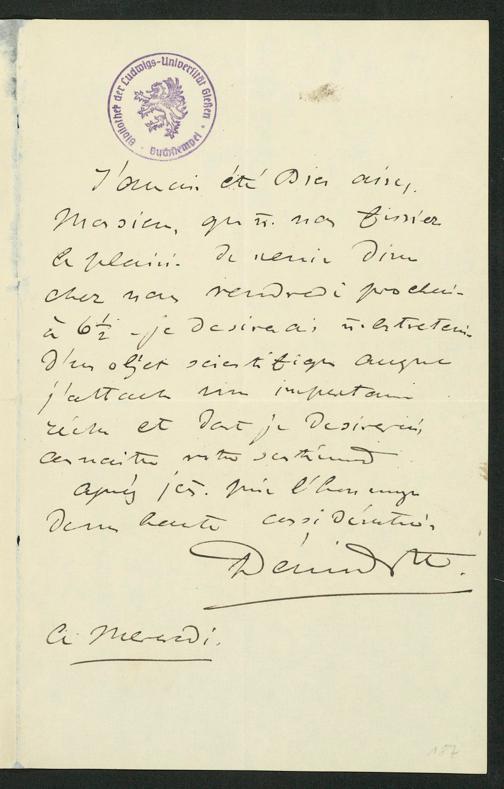 Bibliothek der Ludwigs-Universität Gießen
Buchstempel
J'aurais été bien aise,
Monsieur, que v. nous fissiez
le plaisir de venir diner
chez nous vendredi prochain
à 6 1/2 - je desirerais v. entretenir
d'un objet scientifique auquel
j'attache une importance
réelle et dont je desirerais
connaitre votre sentiment
agréez je v. prie l'hommage
de ma haute consideration
Ce Mercredi.
187